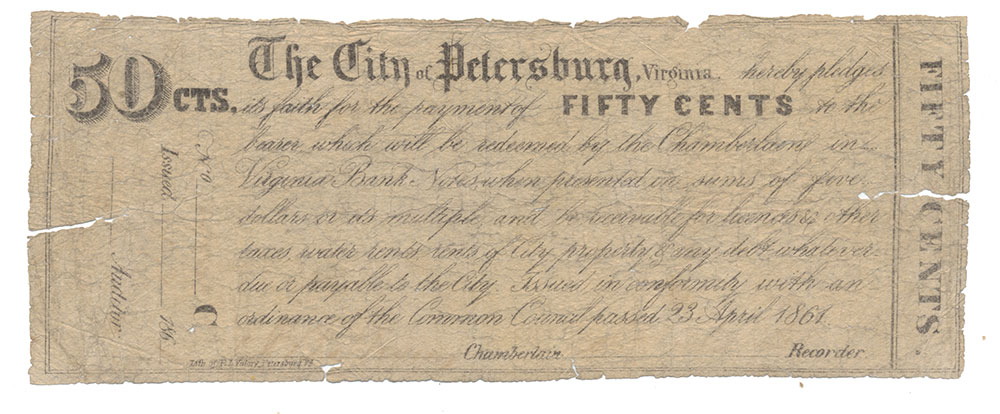 50 CTS.
The City of Petersburg, Virginia. hereby pledges
its faith for the payment of FIFTY CENTS to the
bearer, which will be redeemed by the Chamberlain in
Virginia Bank Notes when presented in sums of five
dollars or its multiple and be receivable for licenses & other
taxes, water rents, rents of City property & any debt whatever
due or payable to the City. Issued in conformity with an
ordinance of the Common Council passed 23 April 1861.
Chamberlain Recorder
No C
Issued 186
Auditor
Petersburg Va
FIFTY CENTS.